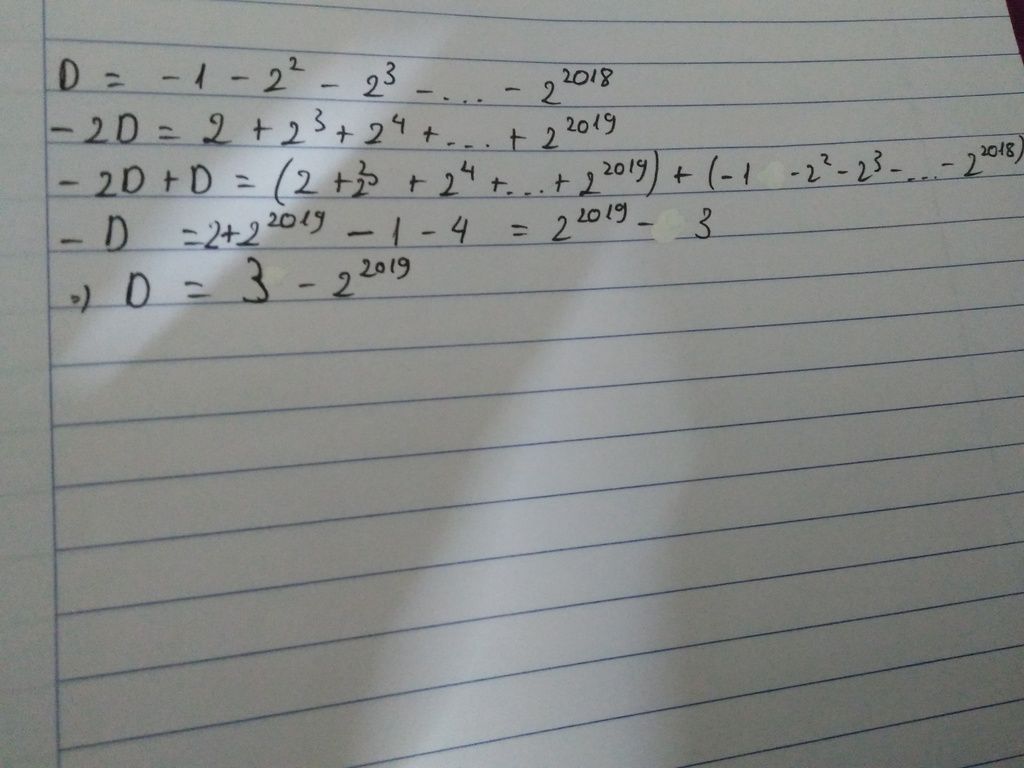 D = - 1 - 2² - 2³ - ... - 2²⁰¹⁸
- 2D = 2 + 2³ + 2⁴ + ... + 2²⁰¹⁹
- 2D + D = (2 + 2³ + 2⁴ + ... + 2²⁰¹⁹) + (- 1 - 2² - 2³ - ... - 2²⁰¹⁸)
- D = 2 + 2²⁰¹⁹ - 1 - 4 = 2²⁰¹⁹ - 3
=) D = 3 - 2²⁰¹⁹